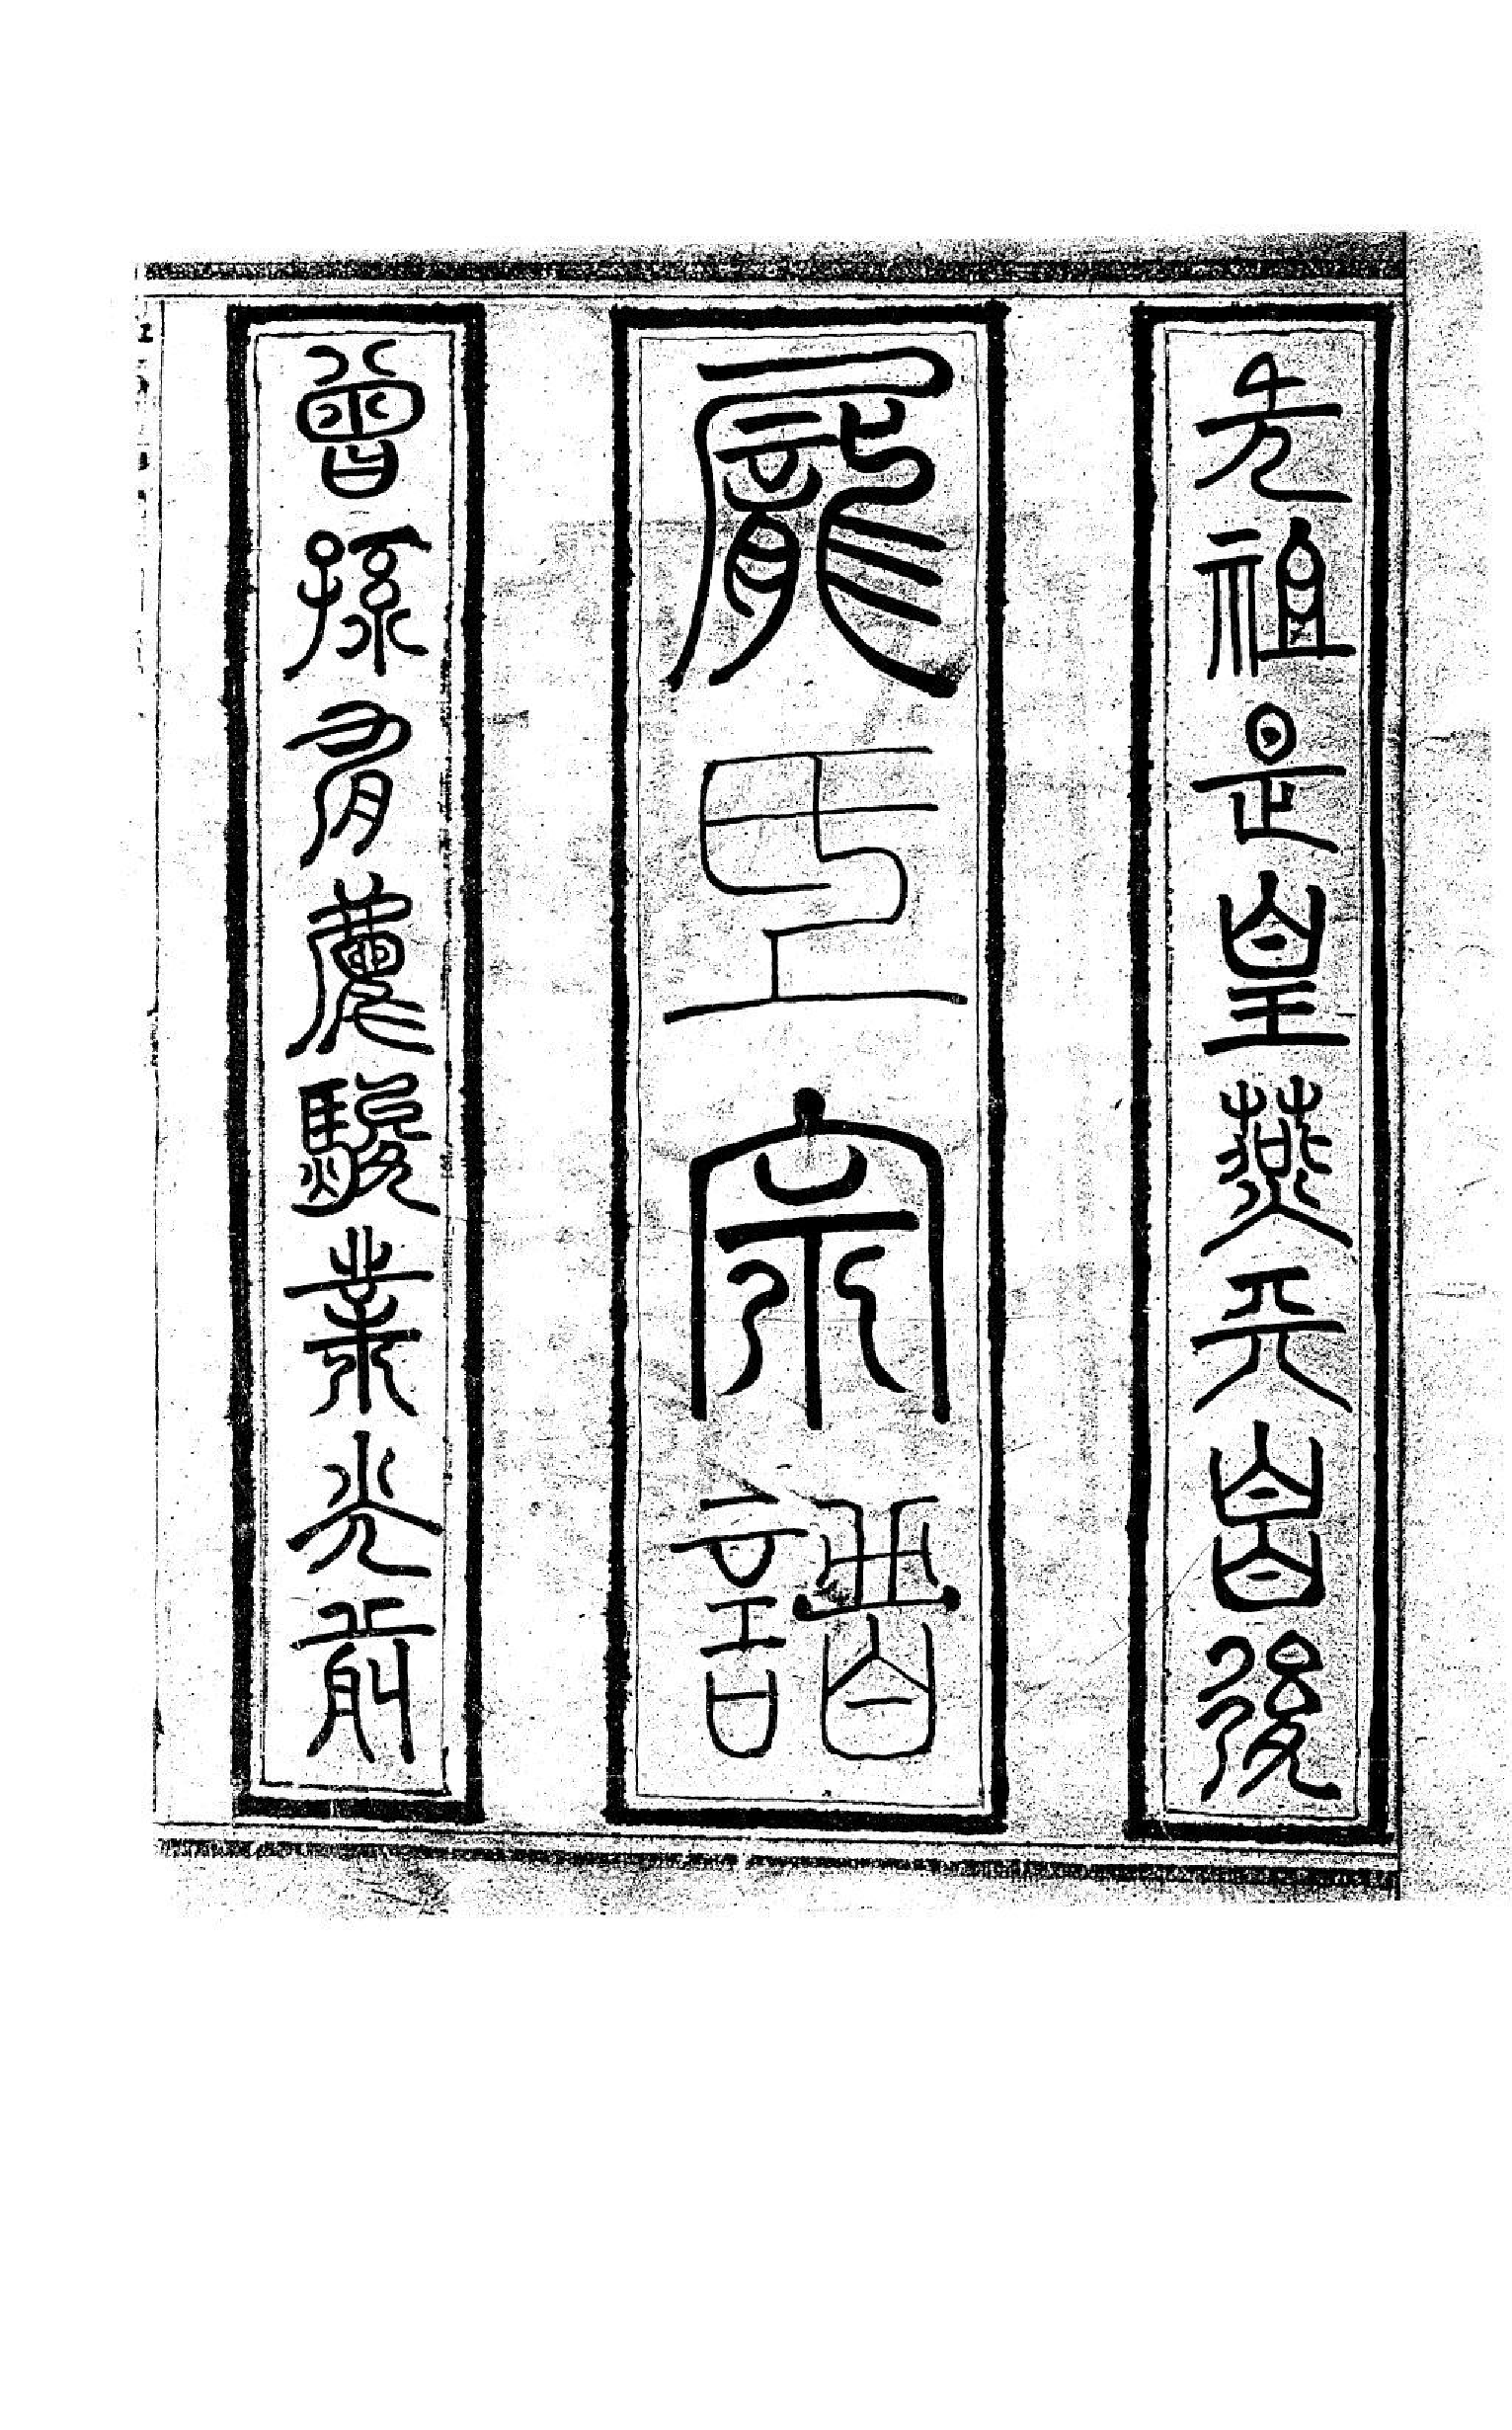 先祖是皇燕天昌後
龐氏宗譜
曾孫有慶駿業光前